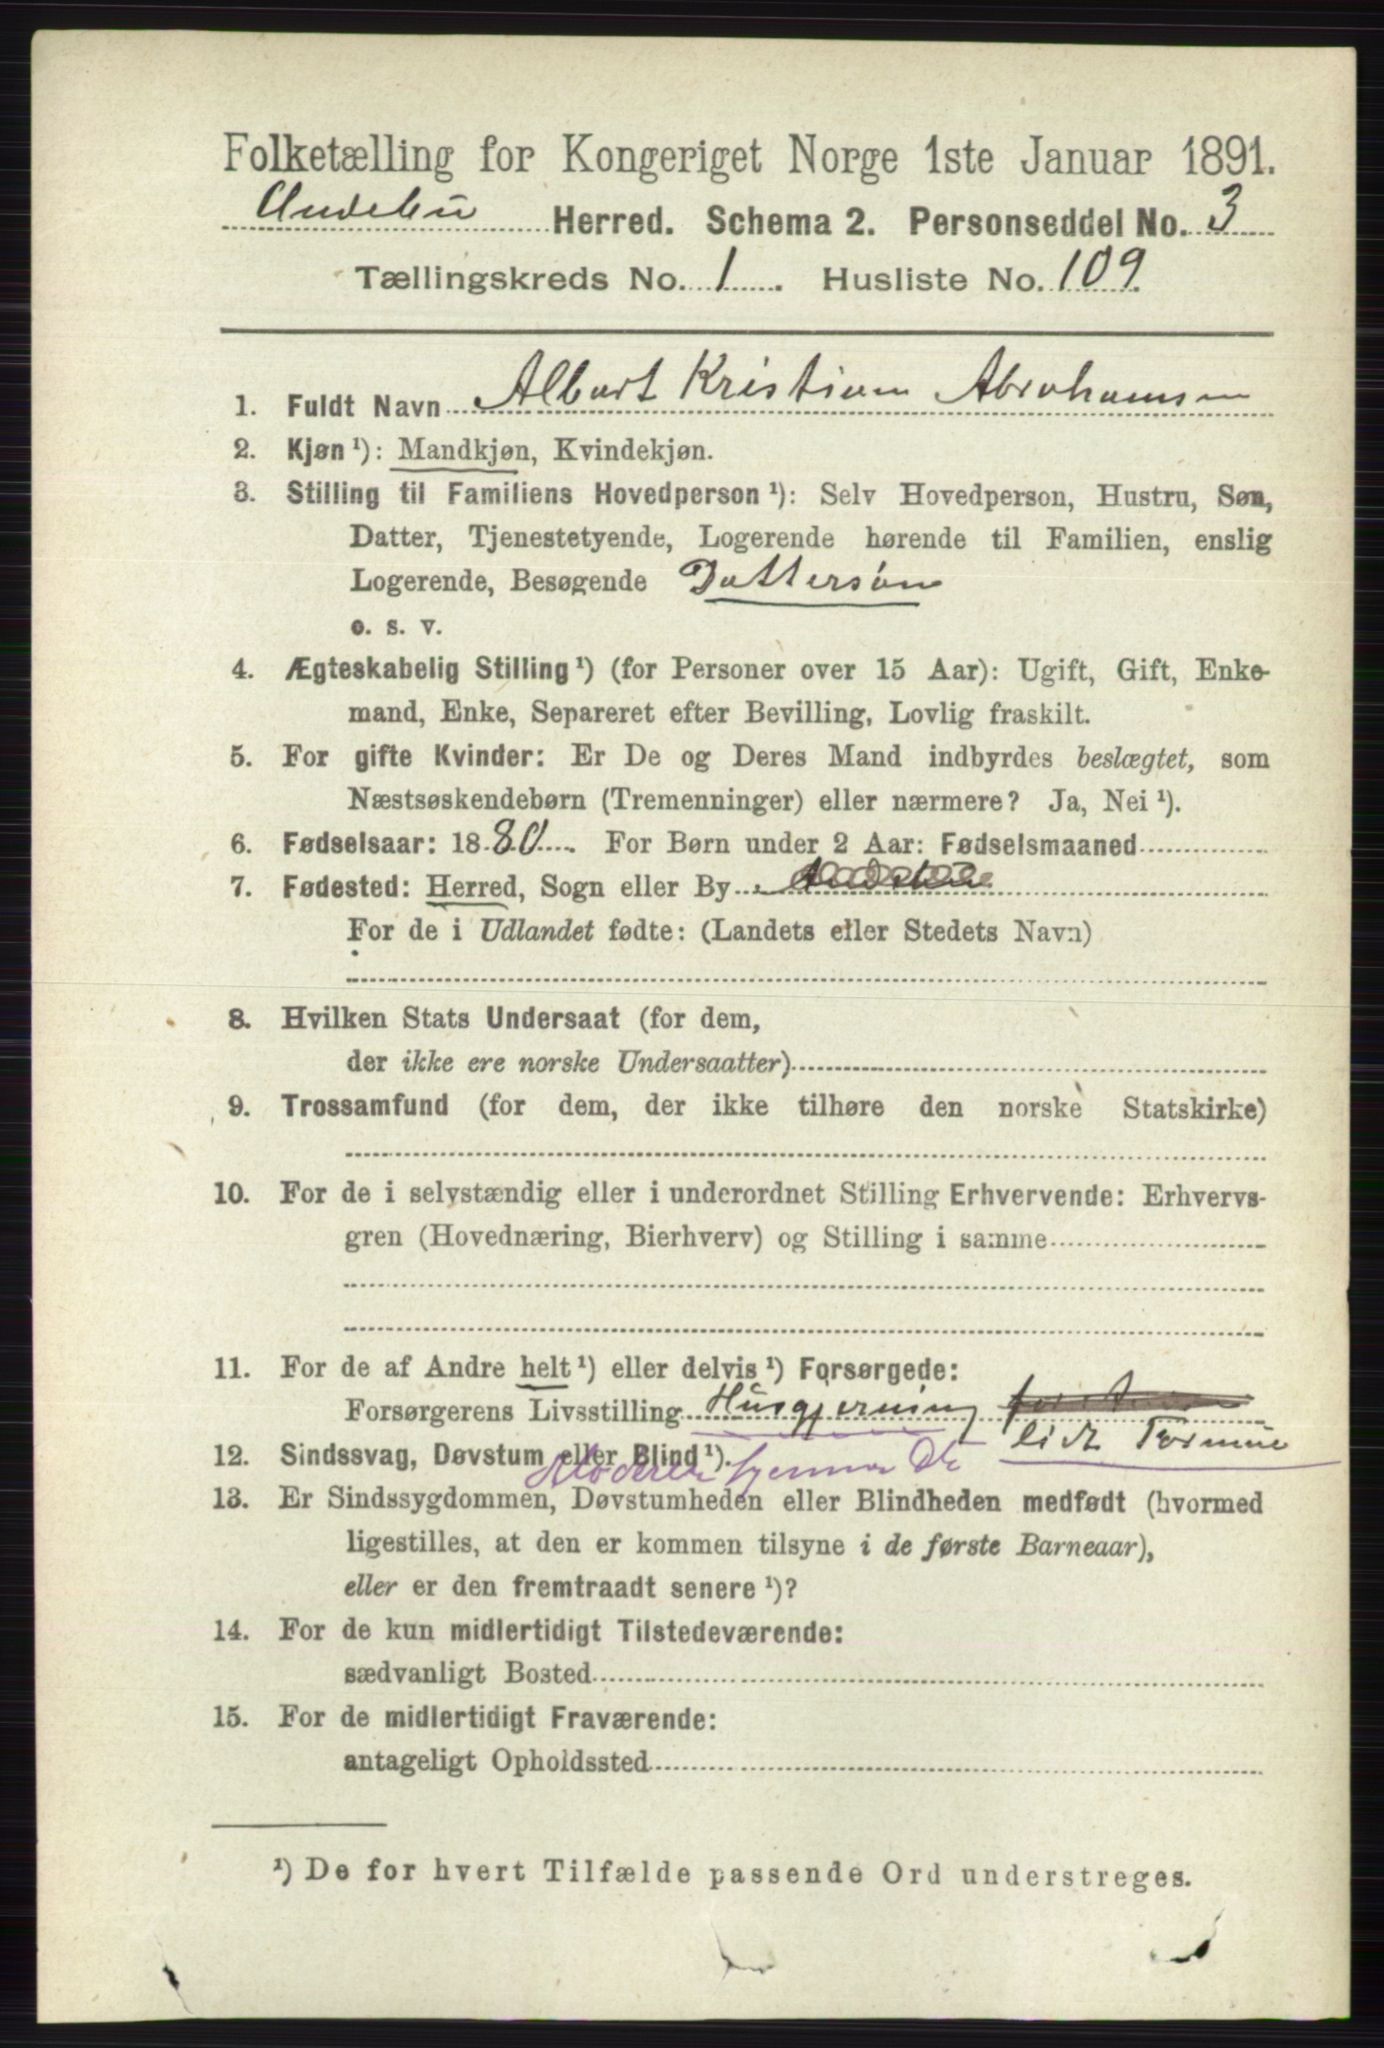 Folketælling for Kongeriget Norge 1ste Januar 1891.
Andebu Herred. Schema 2. Personseddel No. 3
Tællingskreds No. 1. Husliste No. 109
1. Fuldt Navn Albart Kristian Abrahamsen
2. Kjøn ¹): Mandkjøn, Kvindekjøn.
3. Stilling til Familiens Hovedperson ¹): Selv Hovedperson, Hustru, Søn,
Datter, Tjenestetyende, Logerende hørende til Familien, enslig
Logerende, Besøgende Dattersøn
o. s. v.
4. Ægteskabelig Stilling ¹) (for Personer over 15 Aar): Ugift, Gift, Enke-
mand, Enke, Separeret efter Bevilling, Lovlig fraskilt.
5. For gifte Kvinder: Er De og Deres Mand indbyrdes beslægtet, som
Næstsøskendebørn (Tremenninger) eller nærmere? Ja, Nei ¹).
6. Fødselsaar: 1880. For Børn under 2 Aar: Fødselsmaaned
7. Fødested: Herred, Sogn eller By Andebu
For de i Udlandet fødte: (Landets eller Stedets Navn)
8. Hvilken Stats Undersaat (for dem,
der ikke ere norske Undersaatter)
9. Trossamfund (for dem, der ikke tilhøre den norske Statskirke)
10. For de i selvstændig eller i underordnet Stilling Erhvervende: Erhvervs-
gren (Hovednæring, Bierhverv) og Stilling i samme
11. For de af Andre helt ¹) eller delvis ¹) Forsørgede:
Forsørgerens Livsstilling Husgjerning
lidt Formue
12. Sindssvag, Døvstum eller Blind ¹). Moderen hjemme
13. Er Sindssygdommen, Døvstumheden eller Blindheden medfødt (hvormed
ligestilles, at den er kommen tilsyne i de første Barneaar),
eller er den fremtraadt senere ¹)?
14. For de kun midlertidigt Tilstedeværende:
sædvanligt Bosted
15. For de midlertidigt Fraværende:
antageligt Opholdssted
¹) De for hvert Tilfælde passende Ord understreges.